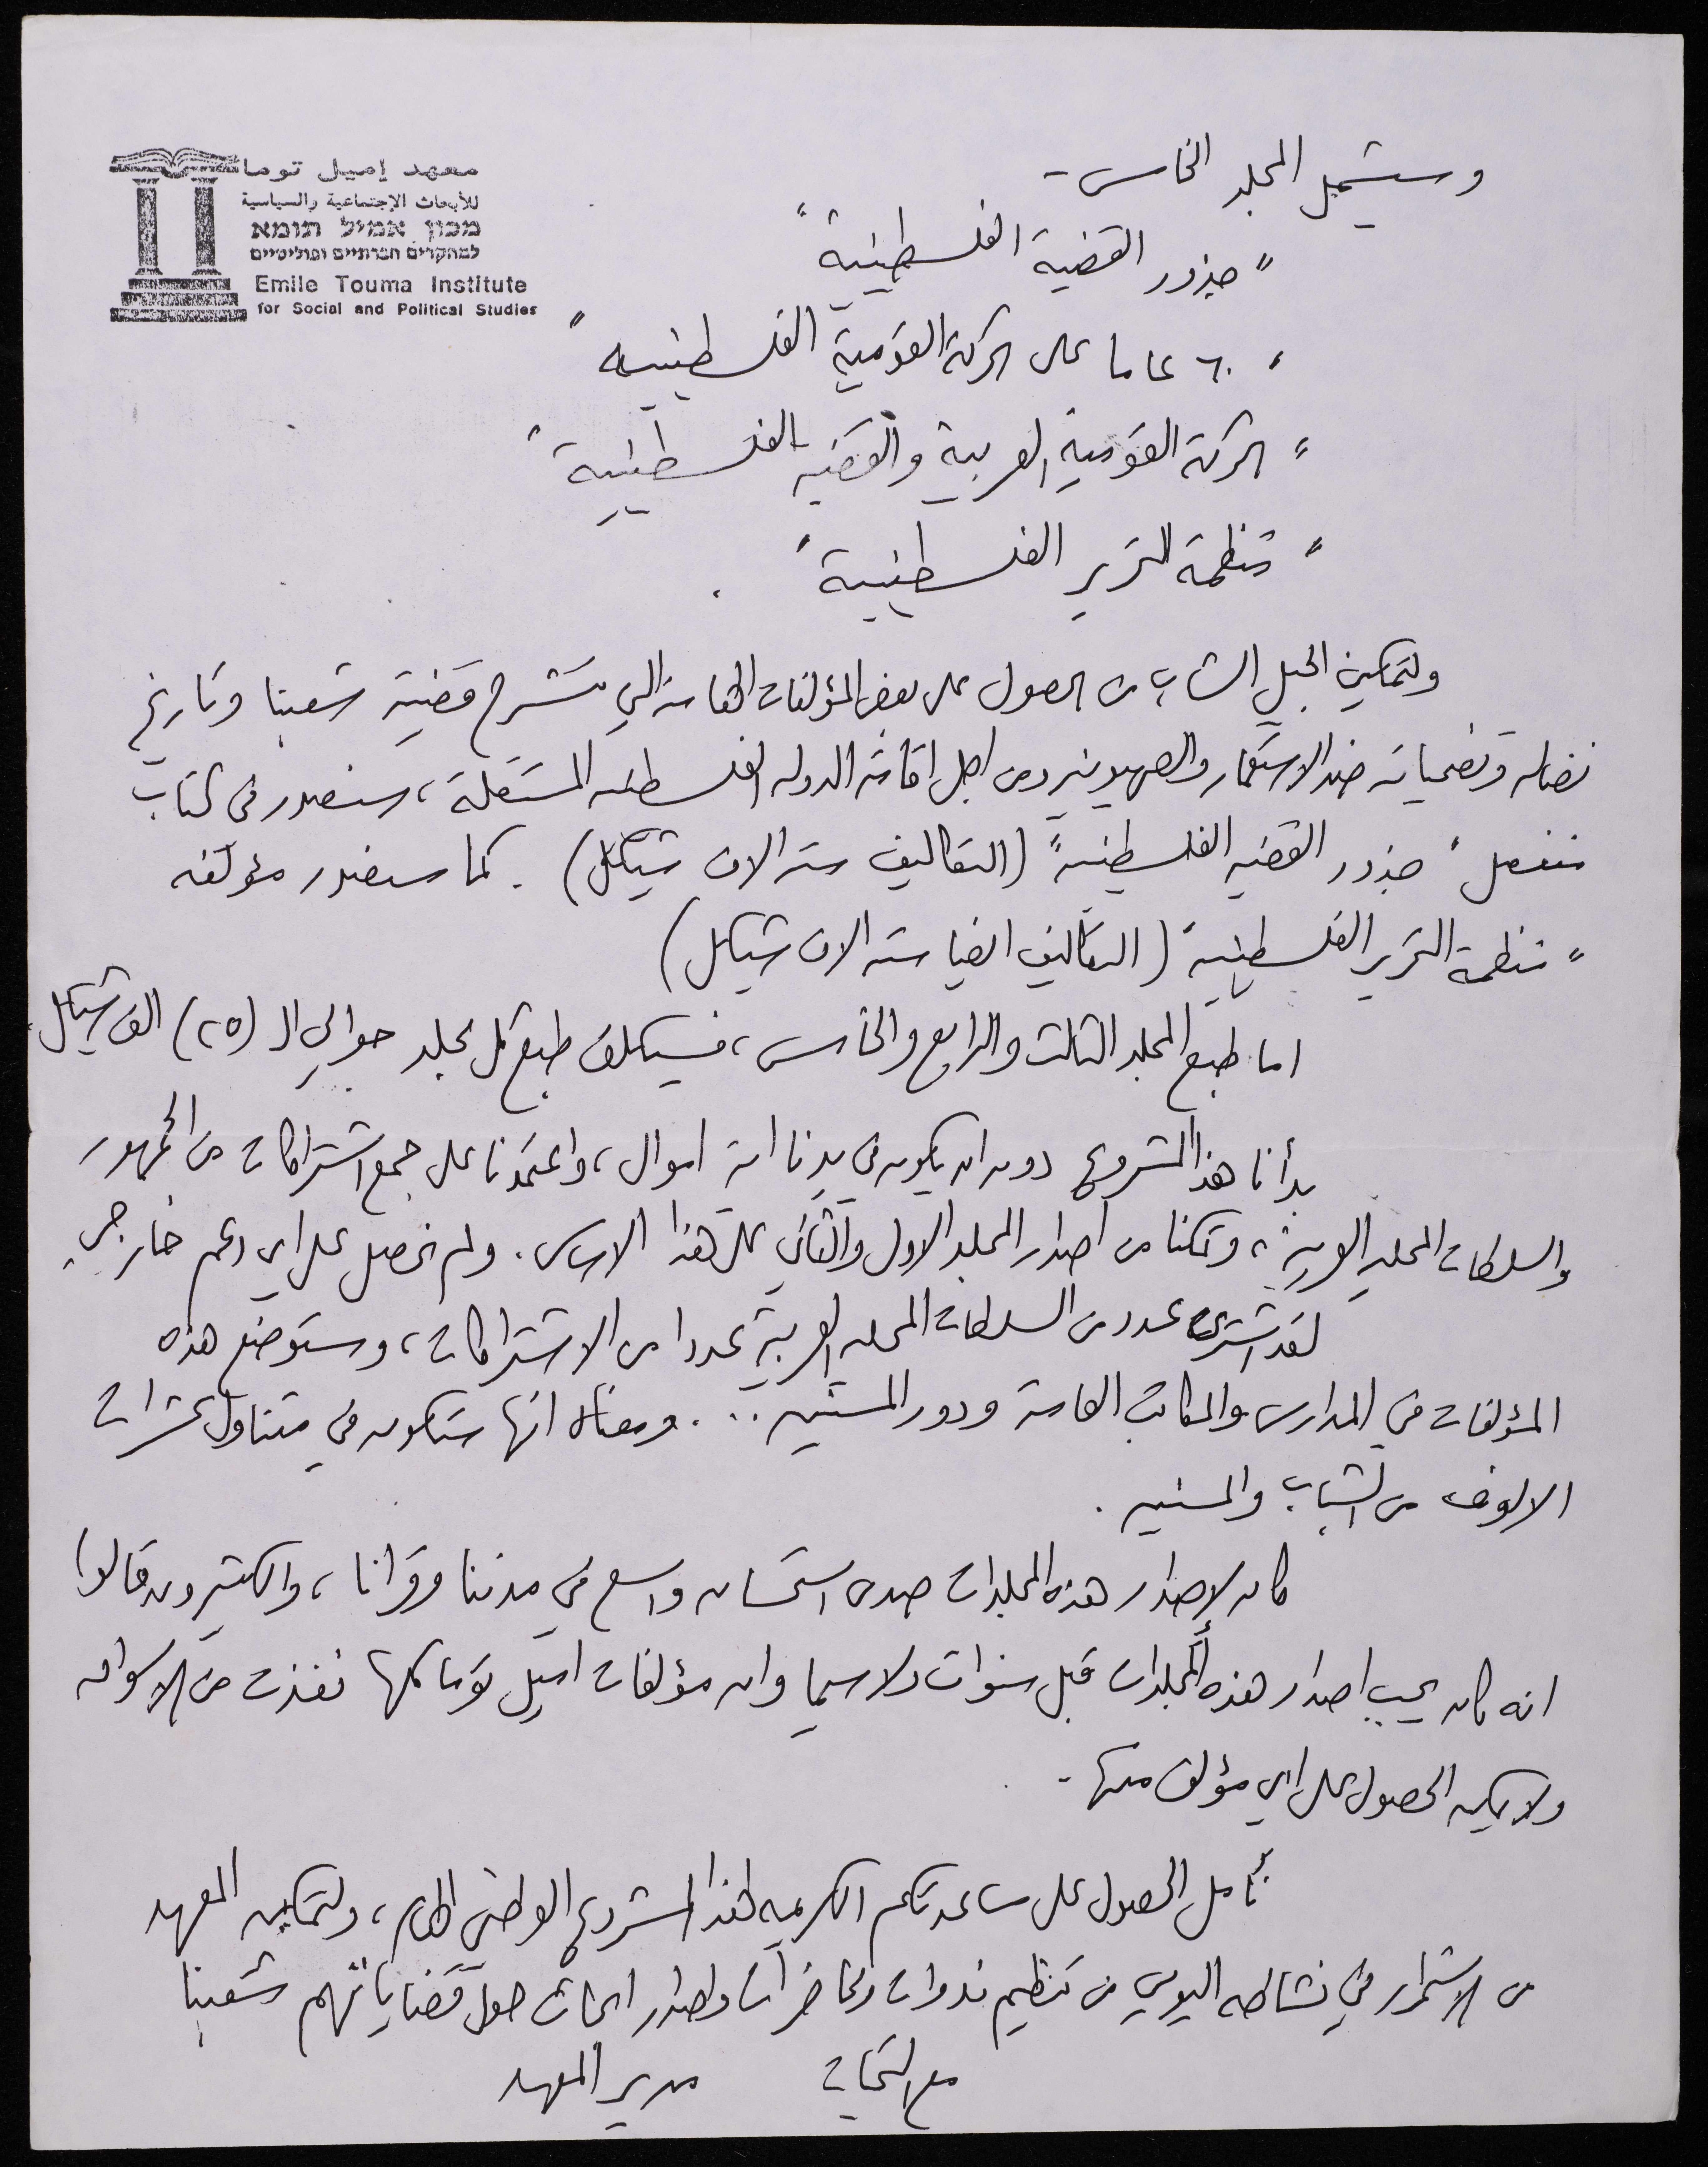 معهد إميل توما
للأبحاث الإجتماعية والسياسية
מכון אמיל תומא
למחקרים חברתיים ופוליטיים
Emile Touma Institute
for Social and Political Studies
وسيشمل المجلد الخامس -
"جذور القضية الفلسطينية"
"٦٠ عاما على الحركة القومية الفلسطينية"
"الحركة القومية العربية والقضية الفلسطينية"
"منظمة التحرير الفلسطينية".
ولتمكين الجيل الشاب من الحصول على بعض المؤلفات الهامة التي تشرح قضية شعبنا وتاريخ
نضاله وتضحياته ضد الاستعمار والصهيونية ومن اجل اقامة الدولة الفلسطينية المستقلة، سنصدر في كتاب
منفصل "جذور القضية الفلسطينية" (التكاليف ستة الاف شيكل). كما سنصدر مؤلفه
"منظمة التحرير الفلسطينية" (التكاليف ايضا ستة الاف شيكل)
اما طبع المجلد الثالث والرابع والخامس، فسيكلف طبع كل مجلد حوالي ال (٢٥) الف شيكل.
بدأنا هذا المشروع دون ان يكون في يدنا اية اموال، واعتمدنا على جمع اشتراكات من الجمهور
والسلطات المحلية العربية، وتمكنا من اصدار المجلد الاول والثاني على هذا الاساس. ولم نحصل على اي دعم خارجي
لقد اشترى عدد من السلطات المحلية العربية عددا من الاشتراكات، وستوضع هذه
المؤلفات في المدارس والمكاتب العامة ودور المسنين... ومعناه انها ستكون في متناول عشرات
الالوف من الشباب والمسنين.
كان لإصدار هذه المجلدات صدى استحسان واسع في مدننا وقرانا، والكثيرون قالوا
انه كان يجب اصدار هذه المجلدات قبل سنوات ولا سيما وان مؤلفات اميل توما كلها نفذت من الاسواق
ولا يمكن الحصول على اي مؤلف منها -
نأمل الحصول على مساعدتكم الكريمة لهذا المشروع الوطني الهام، ولتمكين المعهد
من الاستمرار في نشاطه اليومي من تنظيم ندوات ومحاضرات واصدار ابحاث حول قضايا تهم شعبنا
مع التحيات مدير المعهد